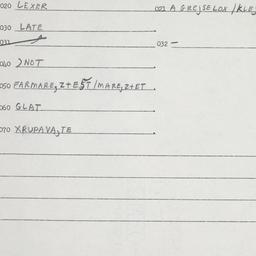 020 LEXER
021 A GREJSELOX / KLEJ
030 LATE
031
032 —
040 ƆNOT
050 FARMARE,Z+EST / MARE,Z+ET
060 GLAT
070 XRUPAVA,TE